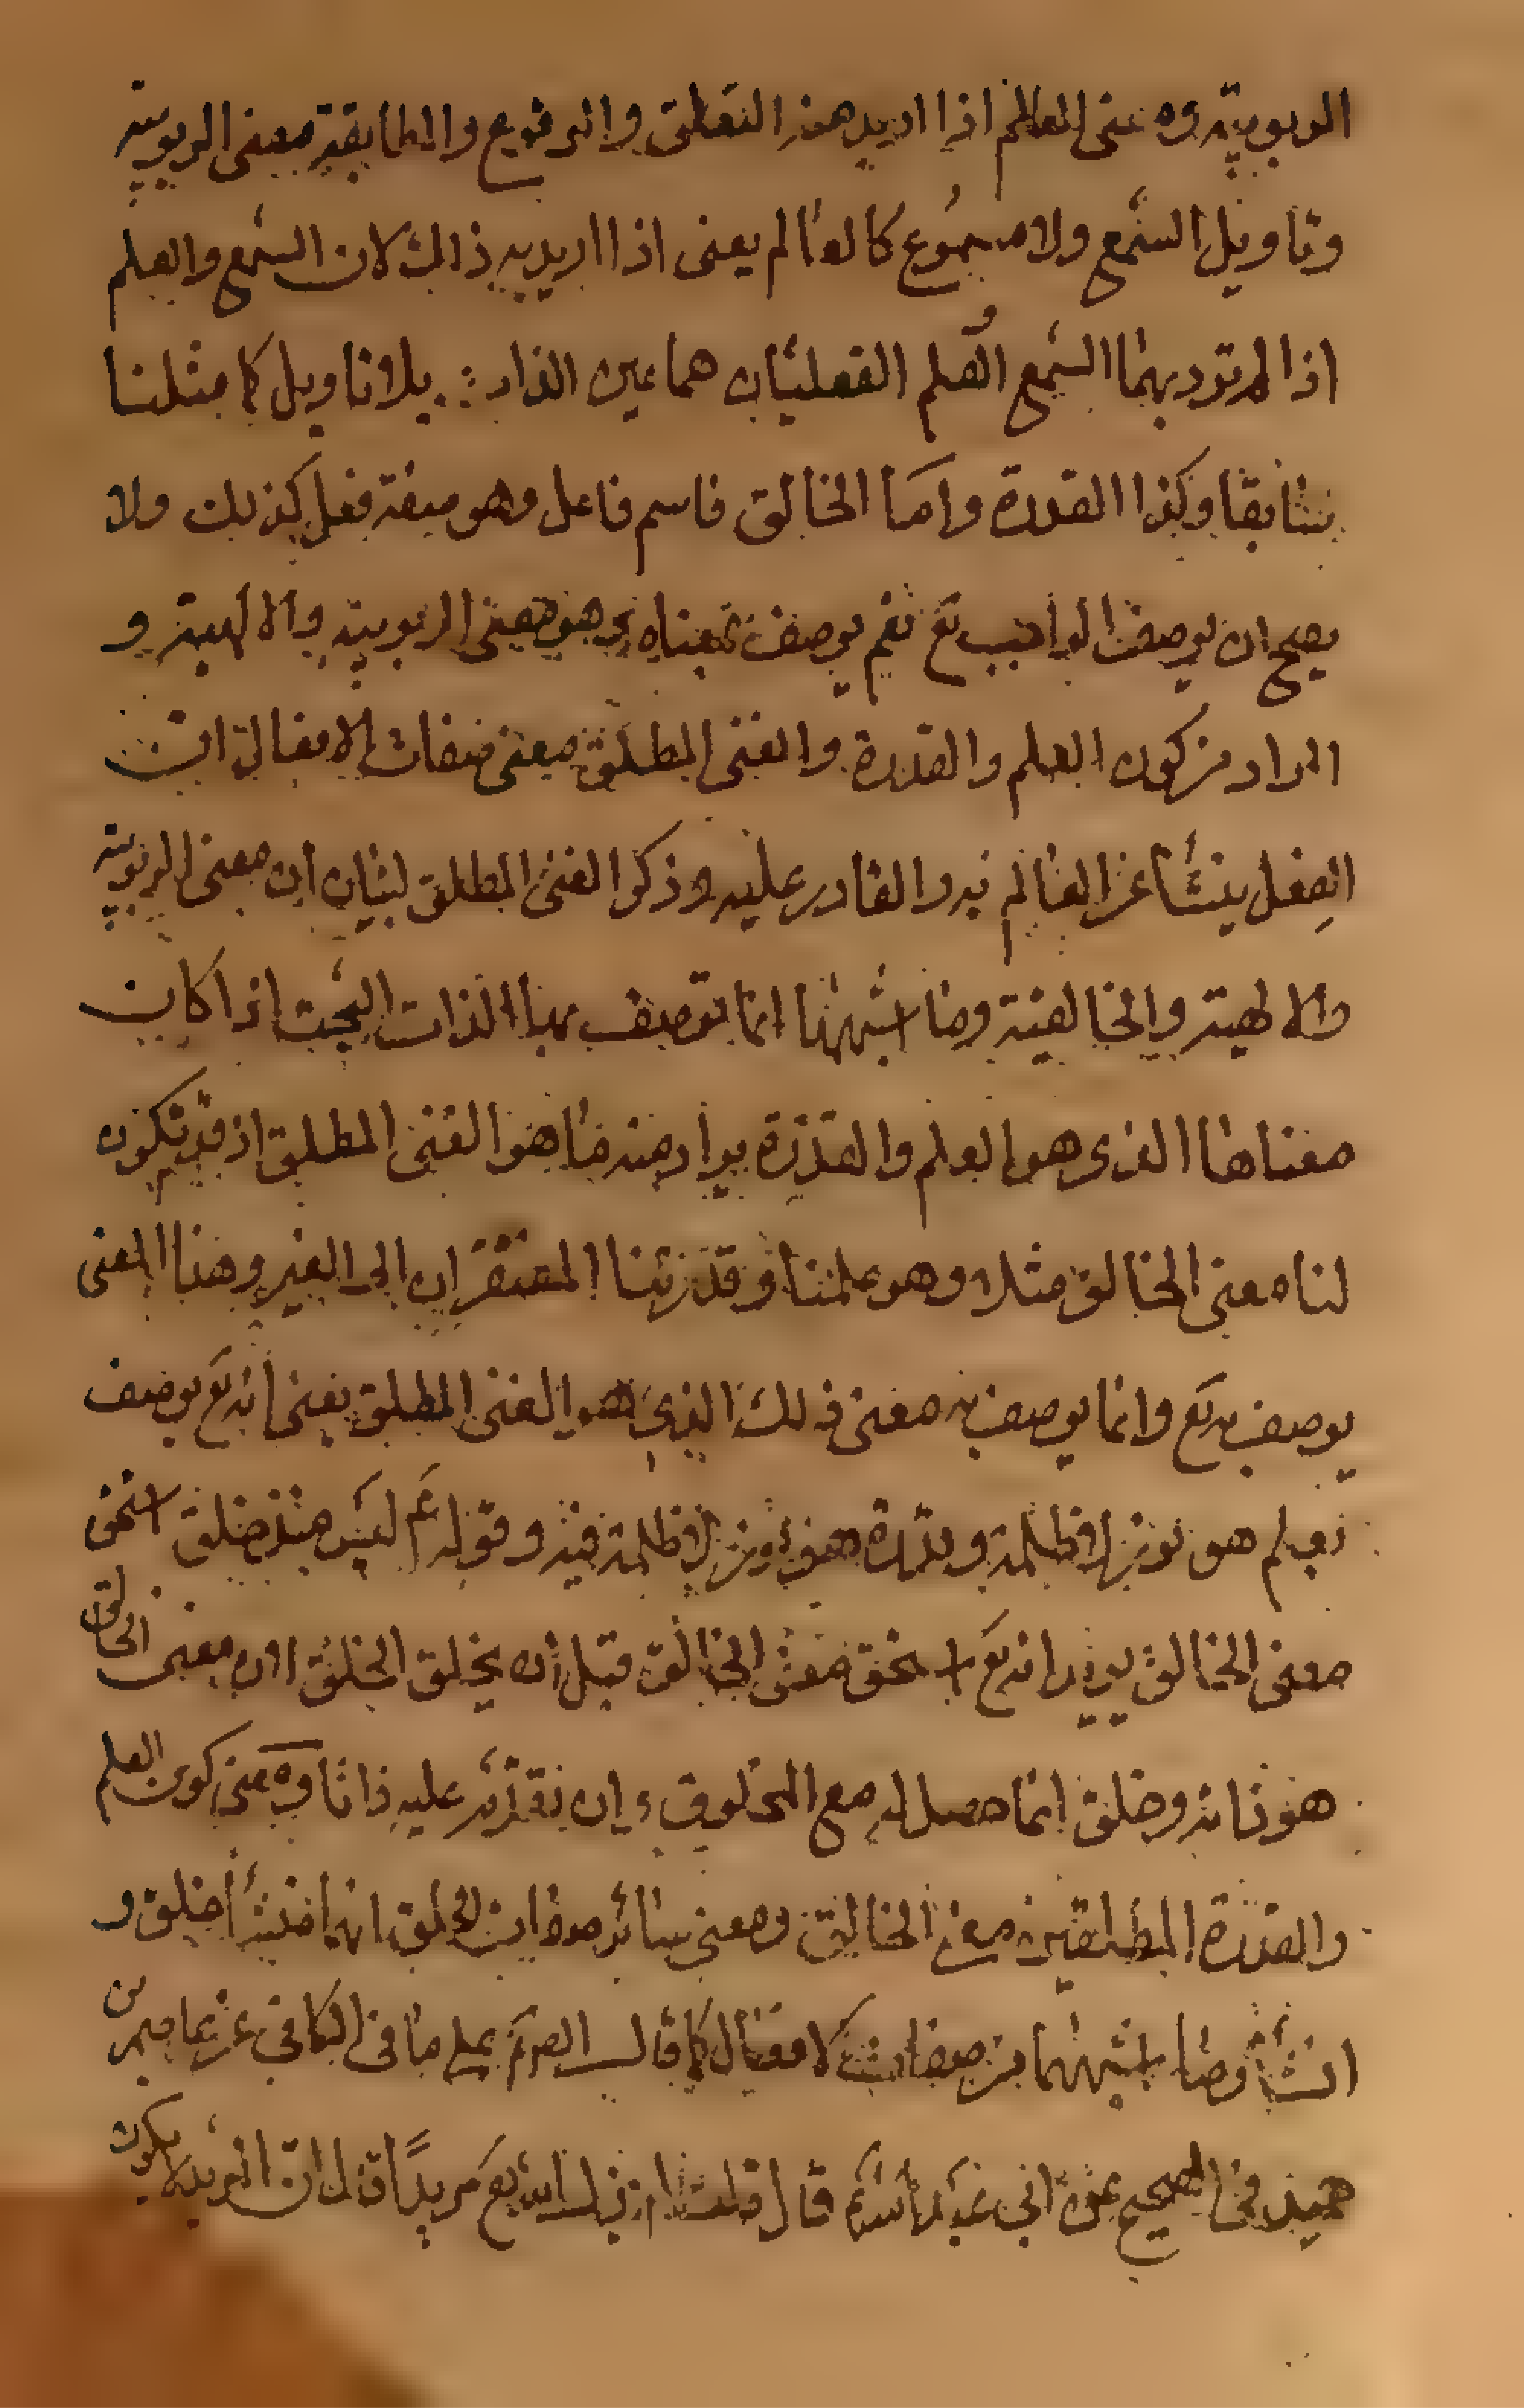 الربوبية ومعنى العالم اذا اريد هذا التعلق والوقوع والمطابقة معنى الربوبية
وتأويل السمع ولا مسموع كالعالم يعنى اذا اريد به ذلك لان السمع والعلم
اذا لم ترد بهما السمع والعلم الفعليان هما عين الذات بلا تاويل كما مثلنا
سابقا وكذا القدرة واما الخالق فاسم فاعل وهو صفة فعل كذلك ولا
يصح ان يوصف الواجب تع نعم يوصف بمعناه وهو معنى الربوبية والالهية و
المراد من كون العلم والقدرة والغنى المطلق معنى صفات الافعال ان
الفعل ينشأ عن العالم به والقادر عليه وذكر الغنى المطلق لبيان ان معنى الربوبية
والالهية والخالقية وما اشبهها انما توصف بها الذات البحت اذا كان
معناها الذى هو العلم والقدرة يراد منه ما هو الغنى المطلق اذ قد يكون
لنا معنى الخالق مثلا وهو علمنا وقدرتنا المفتقران الى الغير وهذا المعنى
يوصف به تع وانما يوصف به معنى ذلك الذى هو الغنى المطلق يعنى انه تع يوصف
بعلم هو نور لا ظلمة وقدرة هو نور لا ظلمة فيه وقوله ع ليس منذ خلق استحق
معنى الخالق يريد انه تع استحق معنى الخالق قبل ان يخلق الخلق لان معنى الخالق
هو ذاته وخلق انما حصل له مع المخلوق وان بقدرته عليه ذاتا ومعنى كون العلم
والقدرة المطلقين معنى الخالق ومعنى سائر صفات الخلق انهما منشأ خلق و
انشأ وما اشبههما من صفات الافعال كما قال الصم على ما فى الكافى عن عاصم بن
حميد فى الصحيح عن ابى عبد الله ع قال قلت لم يزل الله تع مريدا قال ان المريد لا يكون